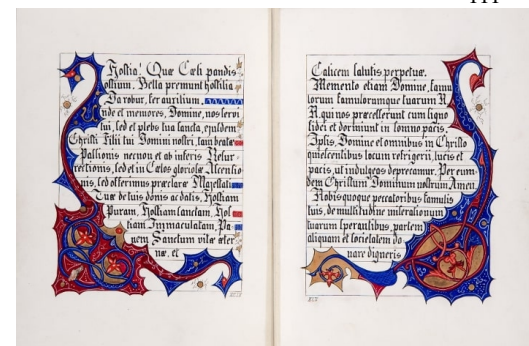 Hostia! Quæ Cœli pandis
ostium. Bella premunt hostilia
Da robur, fer auxilium.
Unde et memores, Domine, nos servi
tui, sed et plebs tua sancta, ejusdem
Christi Filii tui Domini nostri, tam beatæ
Passionis necnon et ab inferis Resur-
rectionis, sed et in Cœlos gloriosæ Ascentio
nis, sed offerimus præclaræ Majestati
Tuæ de tuis donis ac datis, Hostiam
Puram, Hostiam Sanctam, Hos
tiam Immaculatam, Pa-
nem Sanctum vitæ æter
næ, et
Calicem salutis perpetuæ.
Memento etiam Domine, famu
lorum famularumque tuarum N.
N. qui nos præcesserunt cum signo
fidei et dormiunt in somno pacis.
Ipsis, Domine et omnibus in Christo
quiescentibus locum refrigerii, lucis et
pacis, ut indulgeas deprecamur. Per eum-
dem Christum Dominum nostrum Amen.
Nobis quoque peccatoribus famulis
tuis, de multitudine miserationum
tuarum sperantibus, partem
aliquam et societatem do
nare digneris